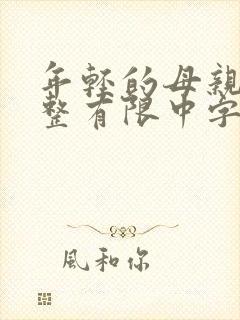 年轻的母親
整有限中字
風和你